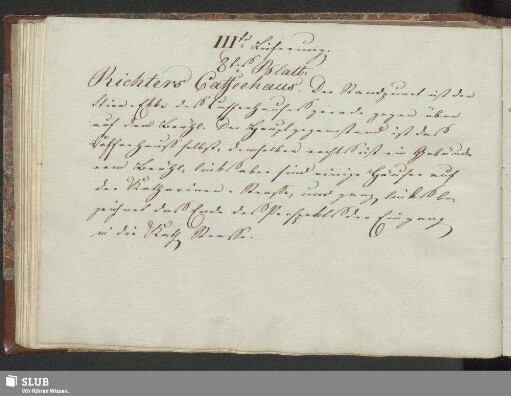 IIIte Lieferung.
8tes Blatt.
Richters Caffeehaus. Der Standpunct ist der
Caffeehauses gerade gegen über
auf dem Brühl. Der Hauptgegenstand ist das
Caffeehaus selbst, demselben rechts ist ein Gebäude
vom Brühl, links aber sind einige Häuser auf
der Katharinen-Strasse, und ganz links be-
zeichnet das Ende des Perspekts der Eingang
in die Kath. Strasse.
SLUB
Wir führen Wissen.